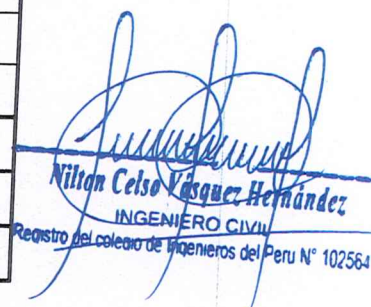 Nilton Celso Vásquez Hernández
INGENIERO CIVIL
Registro del colegio de Ingenieros del Peru N° 102564